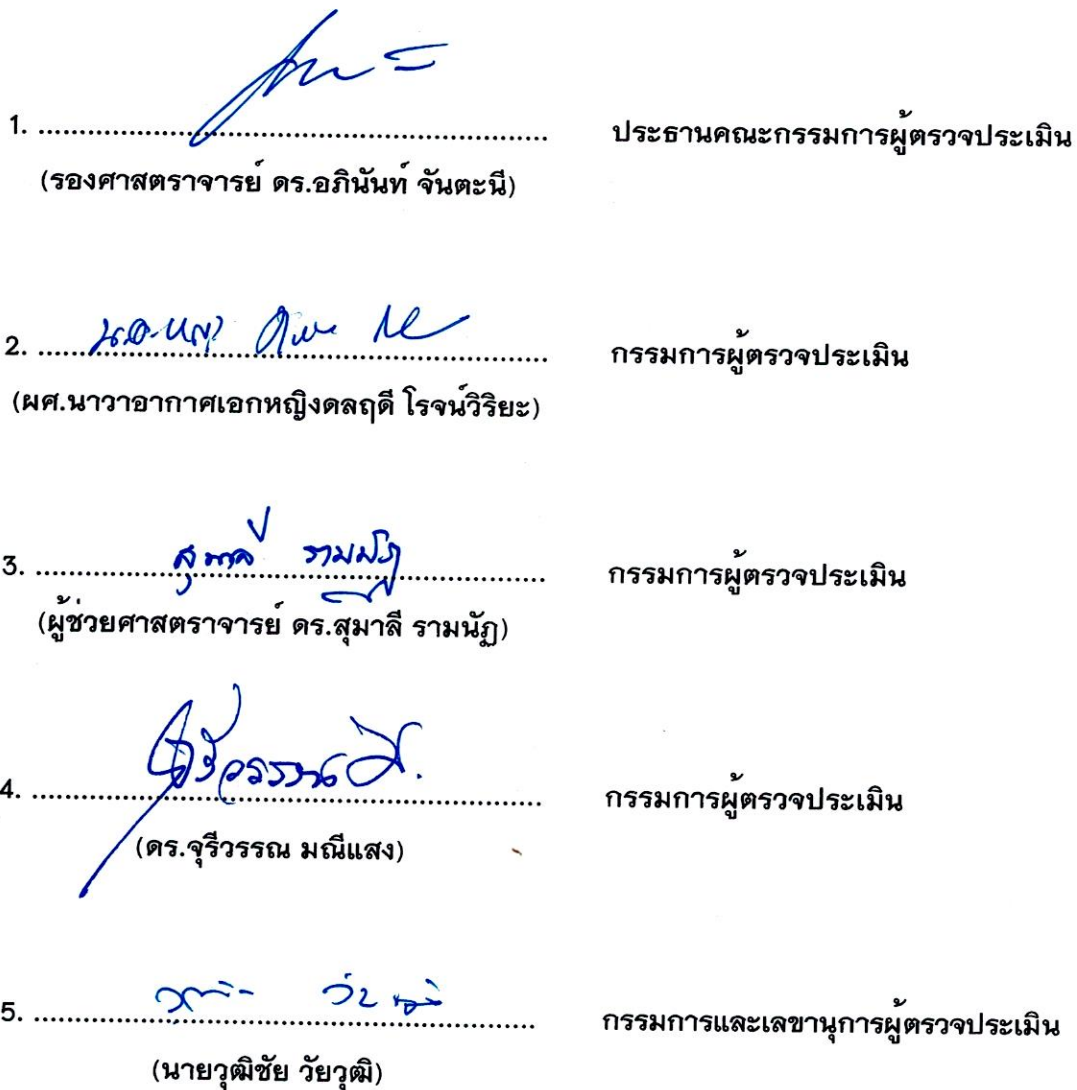 1. .......................................................... ประธานคณะกรรมการผู้ตรวจประเมิน
(รองศาสตราจารย์ ดร.อภินันท์ จันตะนี)
2. .......................................................... กรรมการผู้ตรวจประเมิน
(ผศ.นาวาอากาศเอกหญิงดลฤดี โรจน์วิริยะ)
3. สุมาลี รามนัฏ กรรมการผู้ตรวจประเมิน
(ผู้ช่วยศาสตราจารย์ ดร.สุมาลี รามนัฏ)
4. จุรีวรรณ ม. กรรมการผู้ตรวจประเมิน
(ดร.จุรีวรรณ มณีแสง)
5. .......................................................... กรรมการและเลขานุการผู้ตรวจประเมิน
(นายวุฒิชัย วัยวุฒิ)